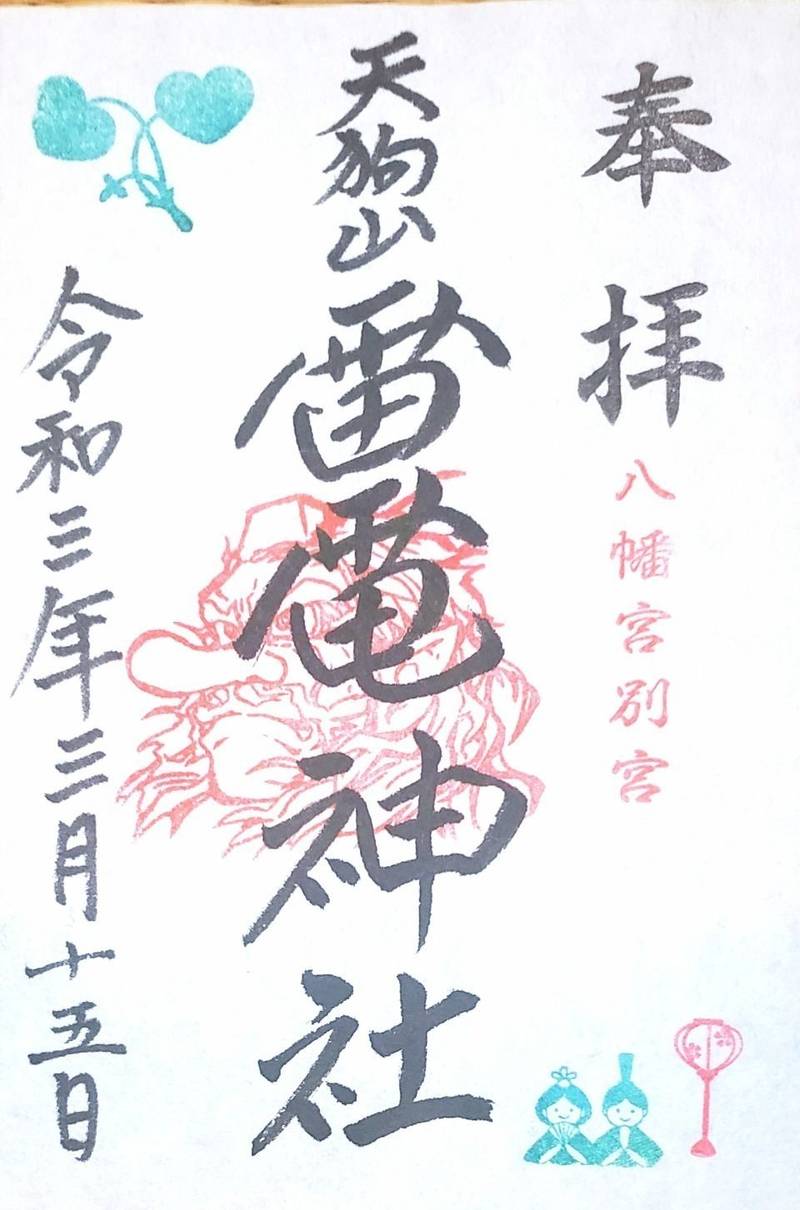 奉拝
八幡宮別宮
天狗山
雷電神社
令和三年三月十五日